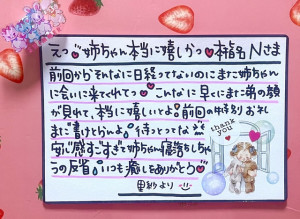 えっ♥姉ちゃん本当に嬉しかつ♥本指名Nさま
前回からそんなに日経ってないのにまた姉ちゃん
に会いに来てくれてっ♥こんなに早くにまた弟の顔
が見れて、本当に嬉しいよ！前回の中 おれ
まだ書けとらんよ。待っとってな
安心感すごすぎて姉ちゃん寝落ちしちゃ
うの反省！いつも癒しをありがとう♥
里紗より
thank you